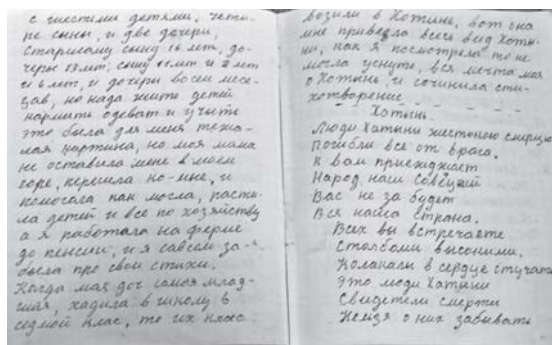 с шестими детями, четы-
ре сыны, и две дочери,
старшому сыну 16 лет, до-
черы 13 лет, сыну 11 лет и 8 лет
и 6 лет, и дочери восем месе-
цав, но нада жить детей
кармить одеват и учить
это была для меня тежо-
лая картина, но моя мама
не оставила мене в моем
горе, перешла ко-мне, и
помогала как могла, расти-
ла детей и все по хозяйству
а я работала на ферме
до пенсии, и я савсем за-
была про свои стихи.
Когда мая доч самая млад-
шая, хадила в школу в
седмой клас, то их клас
возили в Хотынь, вот она
мне привезла весь вид Хоты-
ни, как я посмотрела то не
могла уснуть, вся мечта мая
о Хотынь, и сочинила сти-
хотворение
Хотынь.
Люди Хатыни жестокою смерцю
Погибли все от врага,
К вам приежджяет
Народ наш Совецкий
Вас не за будет
Вся наша страна.
Всех вы встречаете
Столбами высокими,
Колакалы в сердце стучат
Это люди Хатыни
Свидетели смерти
Нелзя о них забывать